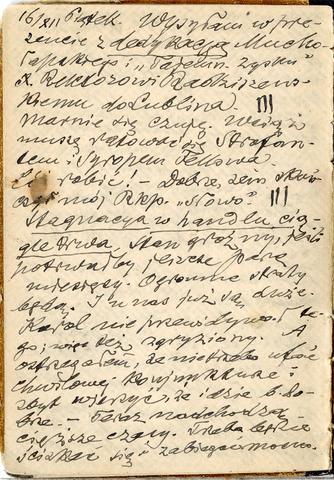 16/XII Piątek. Wysyłam w pre-
zencie z dedykacją Mucho-
łapskiego i „Tajemn. zysku"
X. Rektorowi Radziszew-
skiemu do Lublina. III
Marnie się czuję. Wciąż
muszę ratować się Strofan-
tem i Syropem Fellowa.
Cóż robić! – Dobrze, żem skoń-
czył mój Rkp. „Słowo". III
Stagnacja w handlu cią-
gle trwa, stan groźny, jeśli
potrwałby jeszcze parę
miesięcy. Ogromne straty
będą. I u nas już są duże.
Karol nie przewidywał te-
go, więc też zgryziony. A
ostrzegałem, że nie trzeba ufać
chwilowej konjunkturze i
zbyt wierzyć, że idzie b. do-
brze. – Teraz nadchodzą
cięższe czasy. Trzeba będzie
ściskać się i zabiegać mocno.